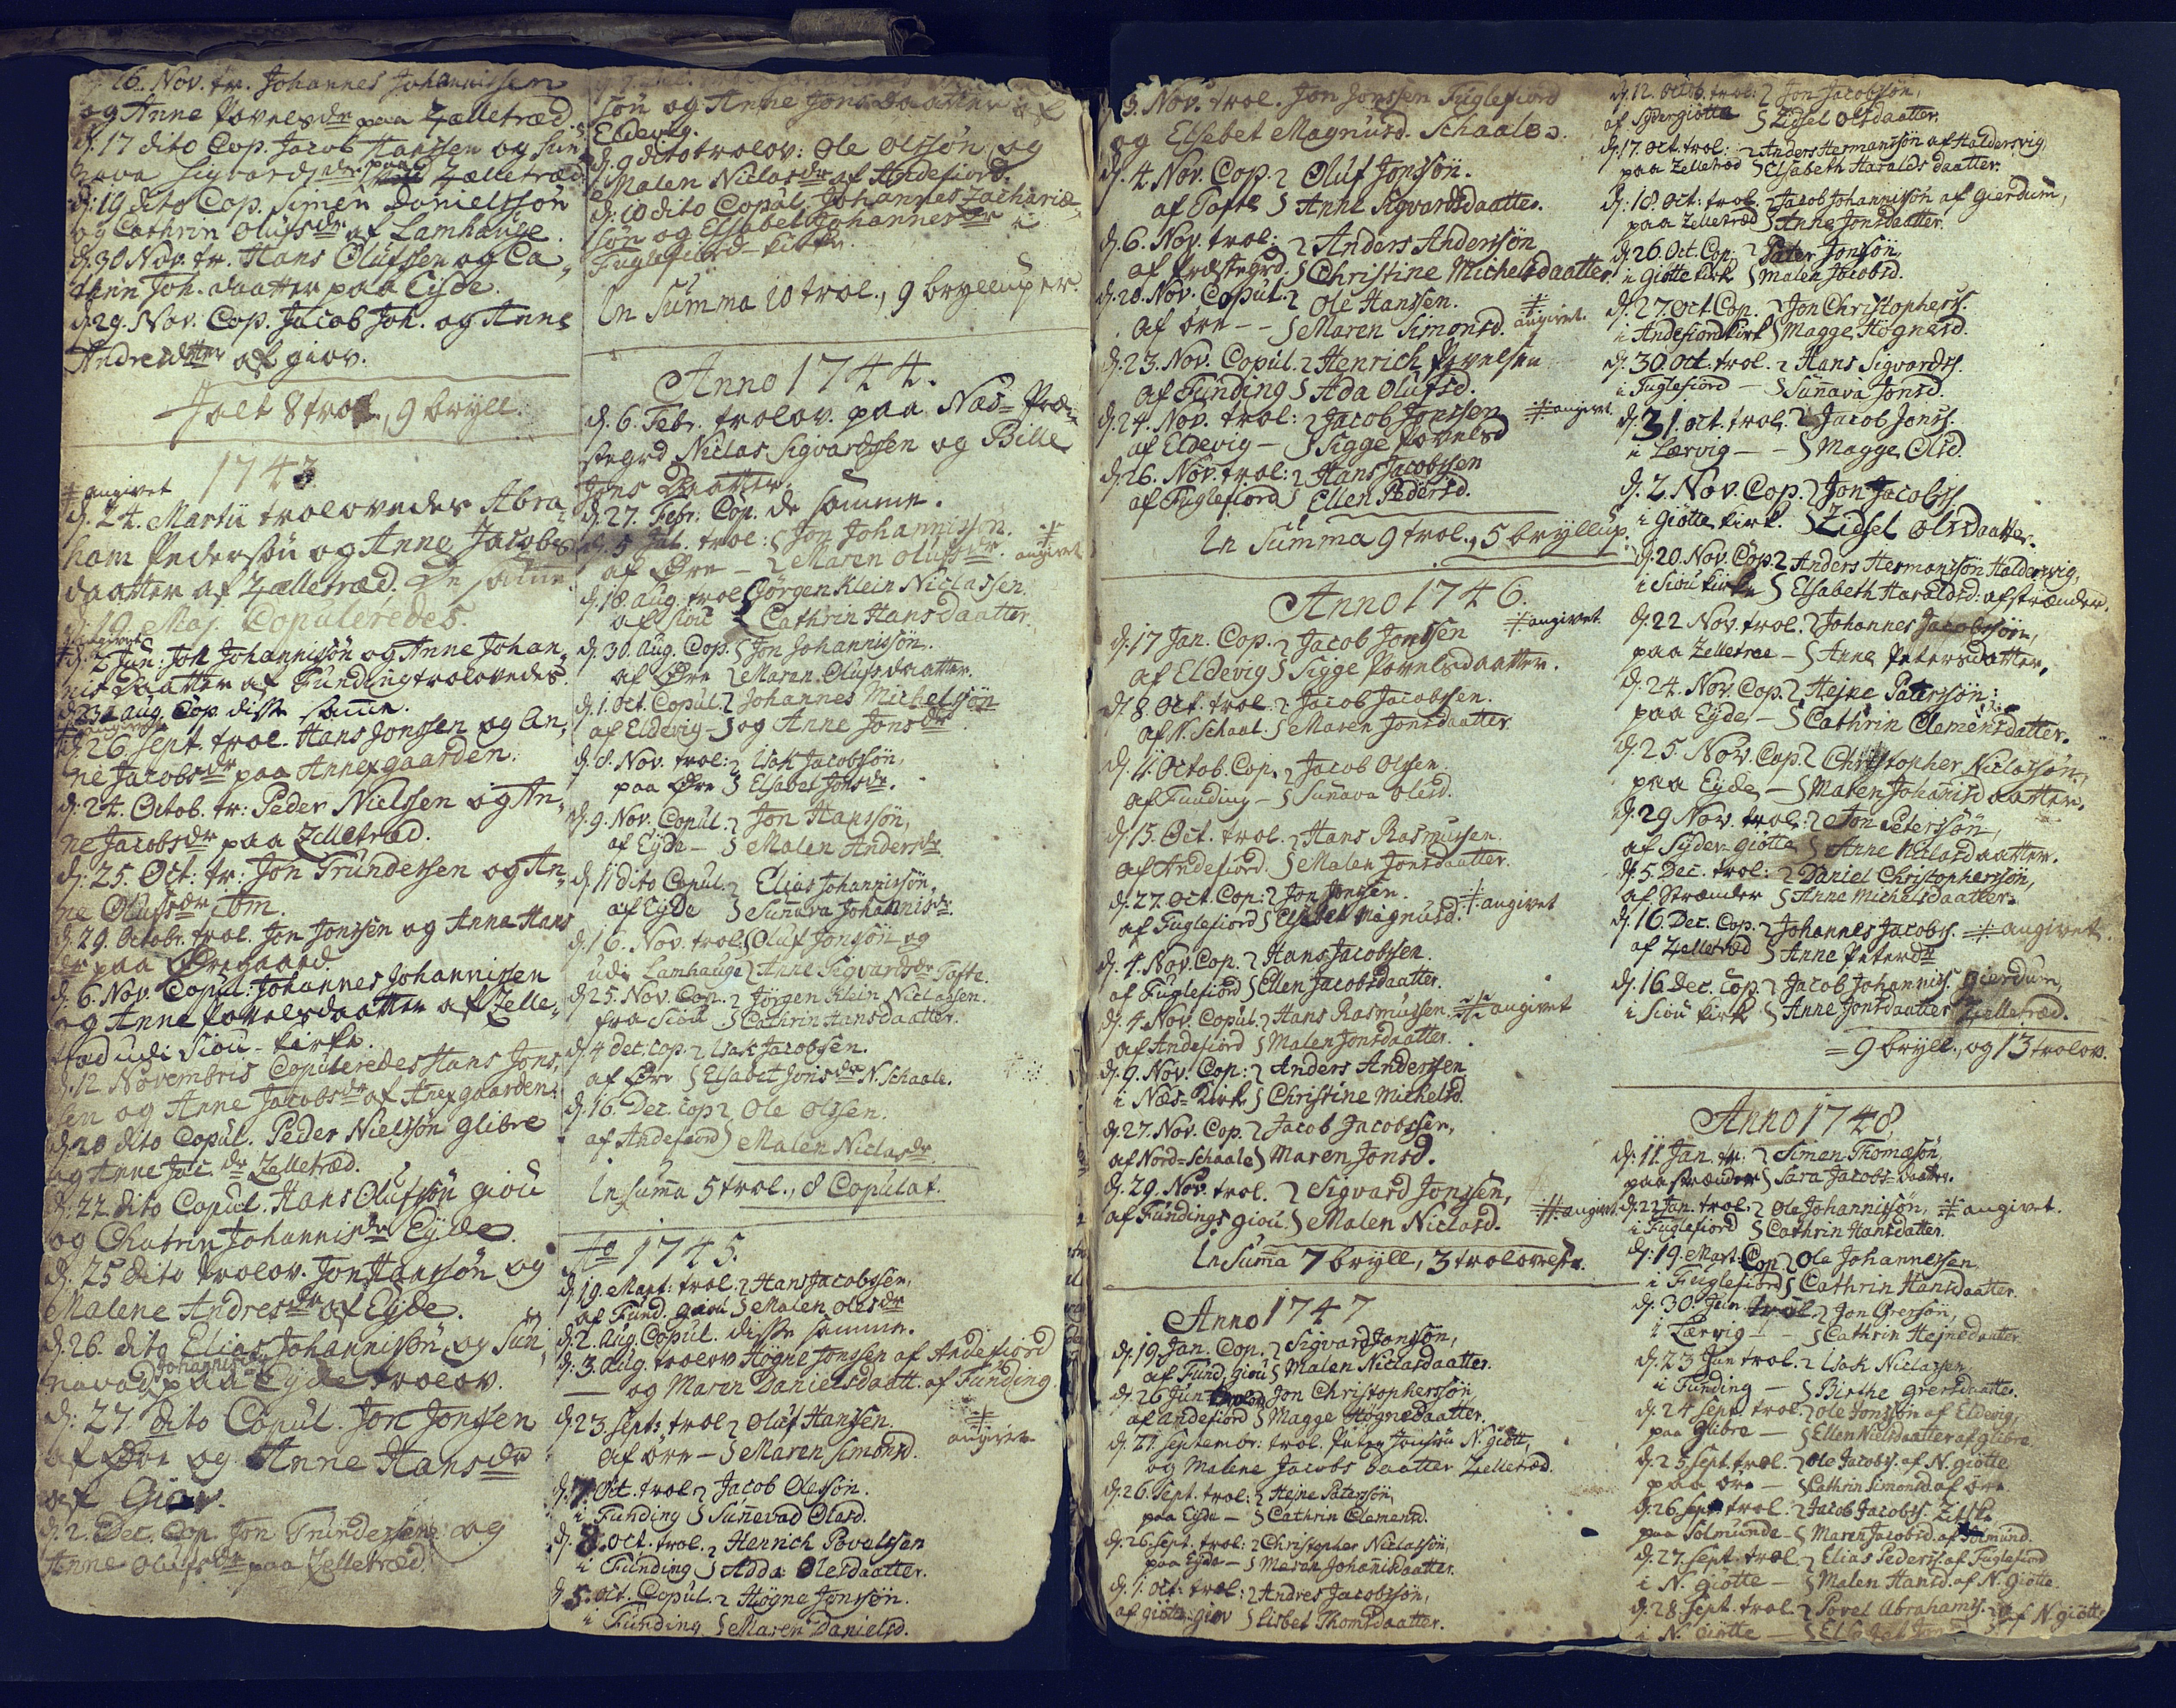 16. Nov. tr. Johannes Johannissen
og Anne Povelsdr paa Zælletræd.
d. 17 dito Cop. Jacob Hanssen og Sun-
nava Sigvardsdr. paa Zælletræd
d: 19 dito Cop. Simen Danielssøn
og Cathrin Olufsdr af Lamhauge.
d. 30 Nov. tr. Hans Olufssen og Ca-
thrin Joh. daatter paa Eyde.
d. 29. Nov. Cop. Jacob Joh. og Anne
Andresdtter af giov.
Jalt 8 trol., 9 bryll.
1743.
# angivet
d. 24. Martii trolovedes Abra-
ham Pedersøn og Anne Jacobs
daatter af Zælletræd. De samme
d. 19. Maj. Copuleredes.
# angivet
d. 2 Jun: Joh Johannisøn og Anne Johan-
nis daatter af Funding trolovedes.
d. 23 Aug. Cop. disse samme.
# angivet
d. 26. Sept. trol. Hans Jonssen og An-
ne Jacobsdr paa Annexgaarden.
d. 24. Octob. tr: Peder Nielssen og An-
ne Jacobsdr paa Zelletræd.
d: 25. Oct: tr: Jon Trundessen og An-
ne Olufsdr ibm.
d. 29. Octobr. trol. Jon Jonssen og Anna Hans
dr paa Øregaard.
d. 6. Nov. Copul: Johannes Johannissen
og Anne Povelsdaatter af Zelle-
træd udi Siou-kirke.
d. 12 Novembris Copuleredes Hans Jons-
sen og Anne Jacobsdr af Anexgaarden.
d. 20 dito Copul. Peder Nielssøn Glibre
og Anne Jac. dr Zelletræd.
d. 22 dito Copul. Hans Olufssøn Giou
og Chatrin Johannisdr Eyde.
d. 25 dito trolov. Jon Hanssøn og
Malene Andresdr af Eyde.
d. 26. dito Elias Johannissøn og Sun-
Johannisdr
navad paa Eyde trolov.
d: 27 dito Copul. Jon Jonssen
af Øre og Anne Hansdr
af Giov.
d. 2. Dec. Cop. Jon Trundessen og
Anne Olufsdr paa Zelletræd.
søn og Anne Jonsdaatter af
Eldevig.
d. 9 dito trolov: Ole Olssøn og
Malen Niclasdr af Andefiord.
d: 10 dito Copul. Johannes Zachariæ-
søn og Elsabet Johannesdr i
Fuglefiord-kirke.
In Summa 10 trol., 9 brylluper.
Anno 1744.
d. 6. Febr. trolov. paa Næs-Præ-
stegrd Niclas Sigvardssen og Bille
Jons Daatter.
d. 27. Febr. Cop. de samme.
d. 5 Jul. trol: Jon Johannissøn. #
af Øre - Maren Olufsdr. angivet
d. 18. Aug. trol Jørgen Klein Niclassen
af Siou Cathrin Hansdaatter
d. 30. Aug. Cop. Jon Johannissøn.
af Øre Maren Olufsdaatter.
d. 1. Oct. Copul. Johannes Michelssøn
af Eldevig - og Anne Jonsdr
d. 8. Nov. trol: Isak Jacobssøn,
paa Øre Elsabet Jonsdr.
d. 9. Nov. Copul. Jon Hanssøn,
af Eyde - Malen Andersdr
d. 11 dito Copul. Elias Johannissøn,
af Eyde Sunnava Johannisdr.
d. 16. Nov. trol. Oluf Jonssøn og
udi Lamhauge Anne Sigvardsdr Tofte.
d. 25. Nov. Cop. Jørgen Klein Niclassen.
fra Siou Cathrin Hansdaatter.
d. 4 Dec. Cop. Isak Jacobssen.
af Øre Elsabet Jonsdr N. Schaale.
d. 16. Dec. Cop Ole Olssen.
af Andefiord Malen Niclasdr
In Summa 5 trol., 8 Copulat.
Ao 1745.
d. 19. Mart: trol. Hans Jacobssen,
af Fund. giou Malen Olesdr
d. 2. Aug. Copul. disse samme.
d. 3. Aug. trolov Høgne Jonssen af Andefiord
og Maren Danielsdaatt. af Funding.
d. 23. Sept: trol Oluf Hanssen. #
af øre - Maren Simonsd. angivet
d. 7 Oct. trol Jacob Olessøn.
i Funding Sunnevad Olesd.
d. 8. Oct. trol. Henrich Povelssen
i Funding Adda Olesdaatter.
d. 5. Oct. Copul. Høgne Jonssøn.
i Funding Maren Danielsd.
3. Nov. trol. Jon Jonssen Fuglefiord
og Elsebet Magnusd. Schaales.
d. 4. Nov. Cop. Oluf Jonssøn.
af Tofte Anne Sigvardsdaatter.
d. 6. Nov. trol: Anders Anderssøn
af Præstegrd. Christine Michelsdaatter.
d. 20. Nov. Copul. Ole Hanssen. #
af øre - - Maren Simonsd. angivet.
d. 23. Nov. Copul. Henrich Povelsen
af Funding Ada Olufsd.
d. 24. Nov. trol: Jacob Jonssen # angivet.
af Eldevig - Sigge Povelsd
d. 26. Nov. trol: Hans Jacobssen
af Fuglefiord Ellen Pedersd.
In Summa 9 trol., 5 bryllup.
Anno 1746.
d. 17 Jan. Cop. Jacob Jonssen # angivet.
af Eldevig Sigge Povelsdaatter.
d. 8. Oct. trol. Jacob Jacobssen.
af N. Schaal. Maren Jonsdaatter.
d. 11. Octob. Cop. Jacob Olssen.
af Funding - Sunava Olesd.
d. 15. Oct. trol. Hans Rasmussen.
af Andefiord. Malen Jonsdaatter.
d. 27. Oct. Cop: Jon Jonssen.
af Fuglefiord Elsebet Magnusd. # angivet
d. 4. Nov. Cop. Hans Jacobssen.
af Fuglefiord Ellen Jacobsdaatter.
d. 4. Nov. Copul. Hans Rasmussen. # angivet
af Andefiord Malen Jonsdaatter.
d. 9. Nov. Cop: Anders Anderssen
i Næs-Kirk Christine Michelsd.
d. 27. Nov. Cop. Jacob Jacobssen,
af Nord-Schaale Maren Jonsd.
d. 29. Nov. trol. Sigvard Jonssen,
af Fundings giou. Malen Niclasd. # angivet
In Summa 7 bryll, 3 trolovelser.
Anno 1747
d. 19 Jan. Cop. Sigvard Jonssøn,
af Fund. Giou Malen Niclasdaatter.
d. 26 Jun trolov Jon Christopherssøn,
af Andefiord Magge Høgnedaatter.
d. 21. Septembr: trol. Peter Jonssøn N. Giøtt,
og Malene Jacobs Daatter Zelletræd.
d. 26. Sept. trol: Hejne Paterssøn,
paa Eyde - Cathrin Clemensd.
d. 26. Sept. trol: Christopher Niclassøn,
paa Eyde - Maren Johannisdaatter.
d. 1. Oct: trol: Andres Jacobssøn,
af Giøtte-giov Lisbet Thomisdaatter.
d. 12. Octob. trol: Jon Jacobssøn,
af Sydergiøtte Zidsel Olsdaatter.
d. 17. Oct. trol: Anders Hermanssøn af Haldersvig
paa Zelletræd Elsabeth Haralds daatter.
d. 18. Oct: trol. Jacob Johannissøn af Gierdum,
paa Zelletræd Anne Jonsdaatter.
d. 26. Oct. Cop. Pater Jonssøn,
i Giøtte kirk Malen Jacobsd.
d. 27. Oct Cop. Jon Christopherss.
i Andefiord kirk Magge Høgnesd.
d. 30. Oct. trol. Hans Sigvardss.
i Fuglefiord - Sunnava Jonsd.
d. 31. Oct. trol. Jacob Jonss.
i Lærvig - - Magge Olsd.
d. 2. Nov. Cop. Jon Jacobss.
i Giøtte kirk. Zidsel Olsdaatter.
d. 20. Nov. Cop. Anders Hermanssøn Haldersvig,
i Siou kirke Elsabeth Haraldsd: af Strænder.
d. 22 Nov. trol. Johannes Jacobssøn,
paa Zelletræe - Anne Petersdatter.
d. 24. Nov. Cop. Hejne Paterssøn:
paa Eyde - Cathrin Clemensdatter.
d. 25 Nov. Cop. Christopher Niclassøn,
paa Eyde - Maren Johannisdaatter.
d. 29 Nov. trol: Jon Peterssøn,
af Syder giøtte Anne Niclasdaatter.
d. 5. Dec. trol: Daniel Christopherssøn,
af Strænder Anne Michelsdaatter.
d. 16. Dec. Cop. Johannes Jacobss. # angivet.
af Zelletræd Anne Petersdtr
d. 16. Dec. Cop. Jacob Johanniss. Gierdum,
i Siou kirk Anne Jonsdaatter Zelletræd.
= 9 bryll., og 13 trolov.
Anno 1748.
d. 11. Jan. tr: Simen Thomæsøn,
paa Strænder Sara Jacobs daatter.
d. 22 Jan. trol: Ole Johannissøn, # angivet.
i Fuglefiord Cathrin Hansdatter.
d. 19. Mart. Cop Ole Johannessen
i Fuglefiord Cathrin Hansdaatter.
d. 30. Jun. trol Jon Grerssøn,
i Lærvig - - Cathrin Hejnedaatter
d. 23 Jun trol. Isak Niclassen
i Funding - Birthe Grersdaatter.
d. 24 Sept. trol. Ole Jonssøn af Eldevig,
paa Glibre - Ellen Nielsdaatter af Glibre.
d. 25 Sept. trol. Ole Jacobss. af N. Giøtte
paa øre - Cathrin Simonsd. af øre
d. 26. Sept trol. Jacob Jacobss.
paa Solmunde - Maren Jacobsd. af Solmund.
d. 27. Sept. trol Elias Pederss. af Fuglefiord
i N. Giøtte - Malen Hansd. af N. Giøtte.
d. 28. Sept. trol. Povel Abrahams. af N. Giøtte
i N. Giøtte -